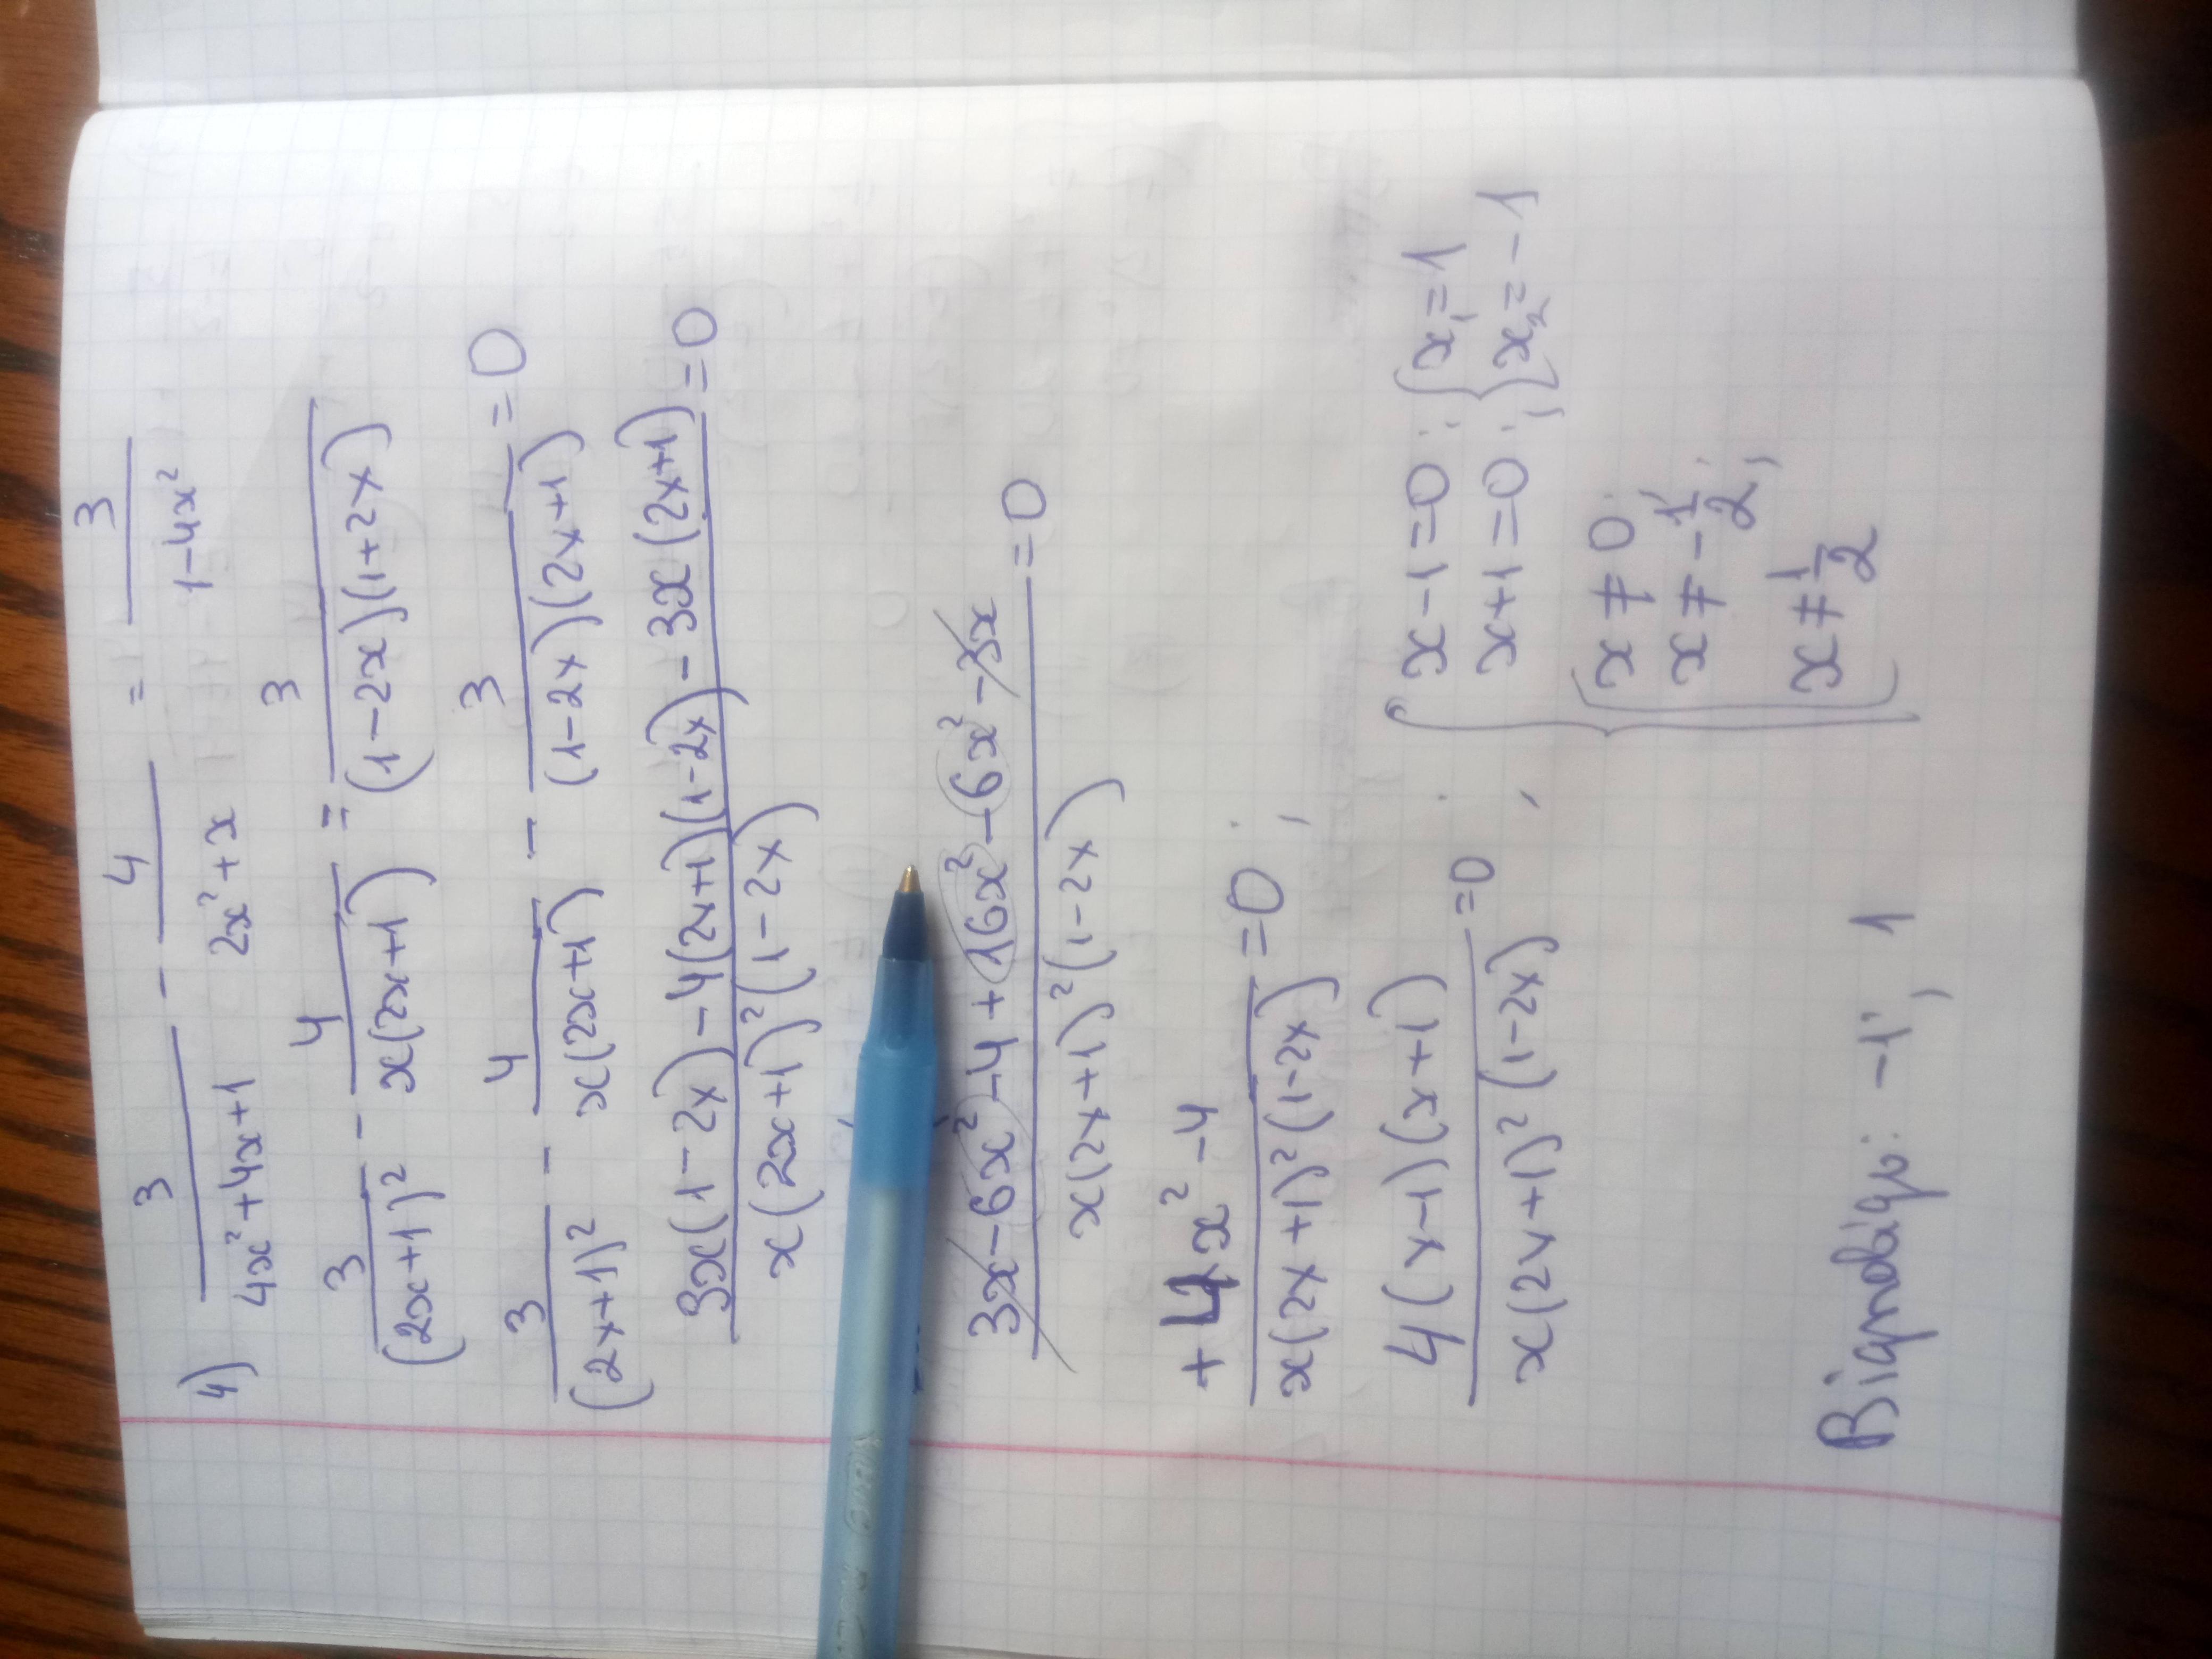 4) 3/(4x²+4x+1) - 4/(2x²+x) = 3/(1-4x²)
3/(2x+1)² - 4/(x(2x+1)) = 3/((1-2x)(1+2x))
3/(2x+1)² - 4/(x(2x+1)) - 3/((1-2x)(2x+1)) = 0
(3x(1-2x) - 4(2x+1)(1-2x) - 3x(2x+1))/(x(2x+1)²(1-2x)) = 0
(3x - 6x² - 4 + 16x² - 6x² - 3x)/(x(2x+1)²(1-2x)) = 0
(+4x² - 4)/(x(2x+1)²(1-2x)) = 0;
4(x-1)(x+1)/(x(2x+1)²(1-2x)) = 0;
x-1=0; x₁=1
x+1=0; x₂=-1
x≠0
x≠-1/2;
x≠1/2
Відповідь: -1; 1